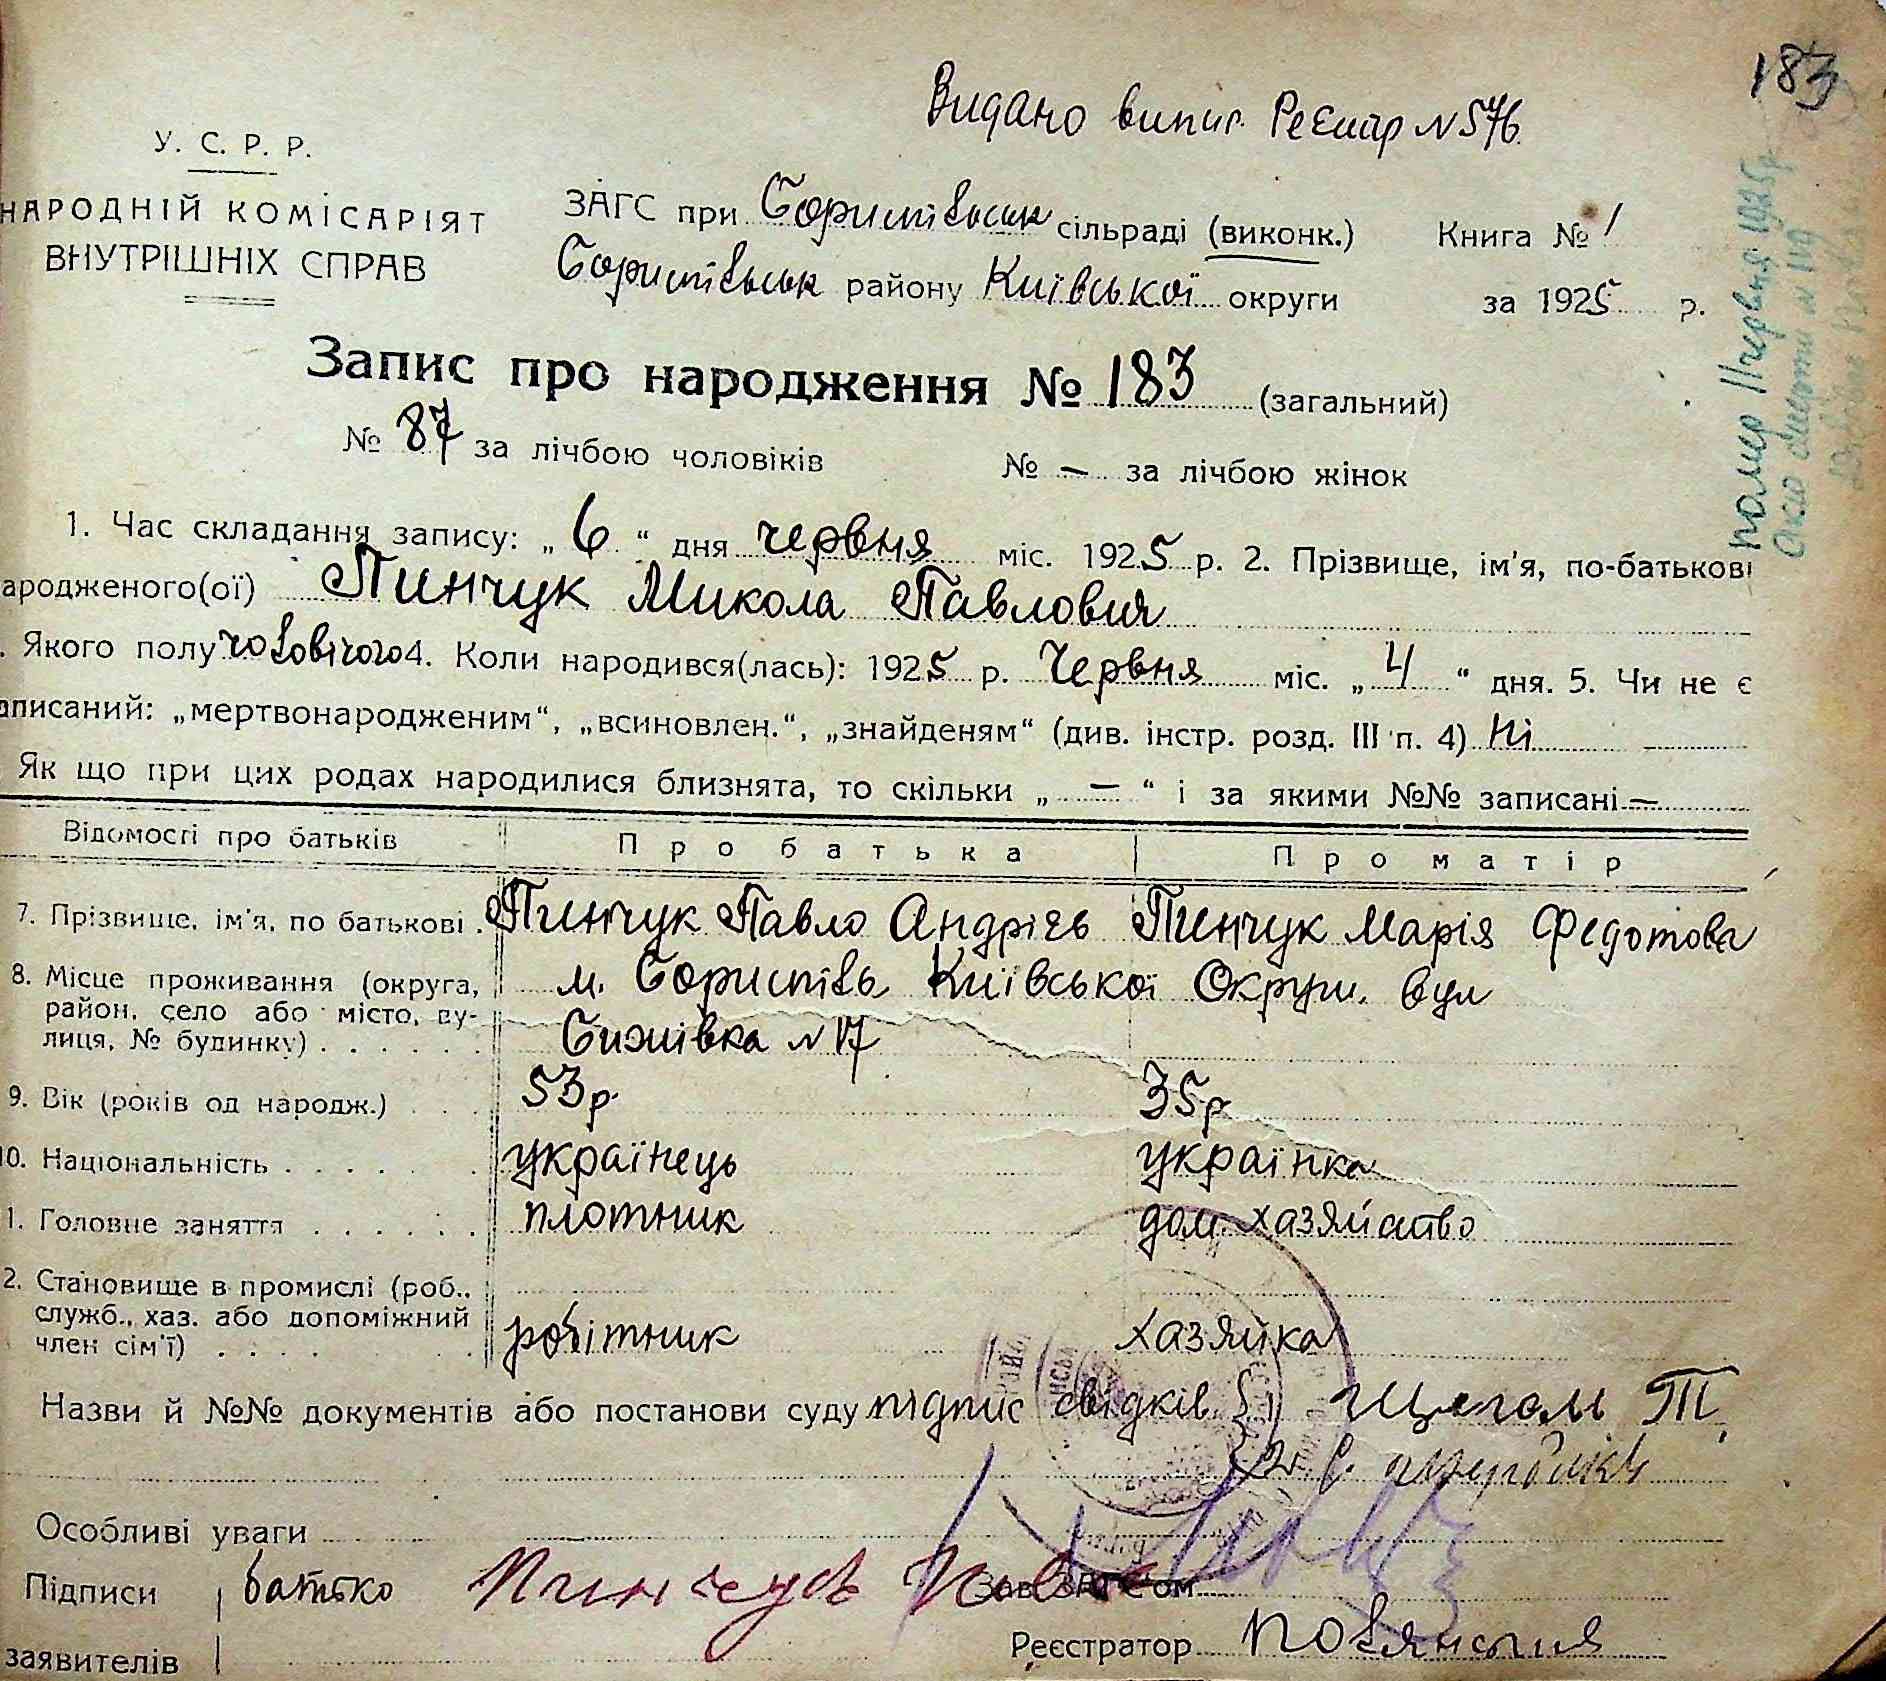 183
Видано випис. Реєстр №576.
У. С. Р. Р.
НАРОДНІЙ КОМІСАРІЯТ
ВНУТРІШНІХ СПРАВ
ЗАГС при Бориспівськ сільраді (виконк.) Книга № 1
Бориспівськ району Київської округи за 1925 р.
Запис про народження № 183 (загальний)
№ 87 за лічбою чоловіків № — за лічбою жінок
1. Час складання запису: „ 6 “ дня червня міс. 1925 р. 2. Прізвище, ім'я, по-батькові
ародженого(ої) Пинчук Микола Павлович
. Якого полу чоловічого 4. Коли народився(лась): 1925 р. Червня міс. „ 4 “ дня. 5. Чи не є
аписаний: „мертвонародженим“, „всиновлен.“, „знайденям“ (див. інстр. розд. III п. 4) Ні
Як що при цих родах народилися близнята, то скільки „ — “ і за якими №№ записані —
Відомості про батьків Про батька Про матір
7. Прізвище, ім'я, по батькові . Пинчук Павло Андрієв Пинчук Марія Федотова
8. Місце проживання (округа, район, село або місто, вулиця, № будинку) . . . . . м. Бориспів Київської Округи. вул
№ 17
9. Вік (років од народж.) . . . 53р. 35р
10. Національність . . . . . українець українка
1. Головне заняття . . . . . . плотник дом. хазяйство
2. Становище в промислі (роб.,
служб., хаз. або допоміжний
член сім'ї) . . . . робітник хазяйка
Назви й №№ документів або постанови суду підпис свідків 1 Щеголь Т.
2.
Особливі уваги
Підписи батько Пинчукъ Зав. ЗАГС'ом
заявителів Реєстратор
помер 11 червня 1925 р
Акт смерти № 119